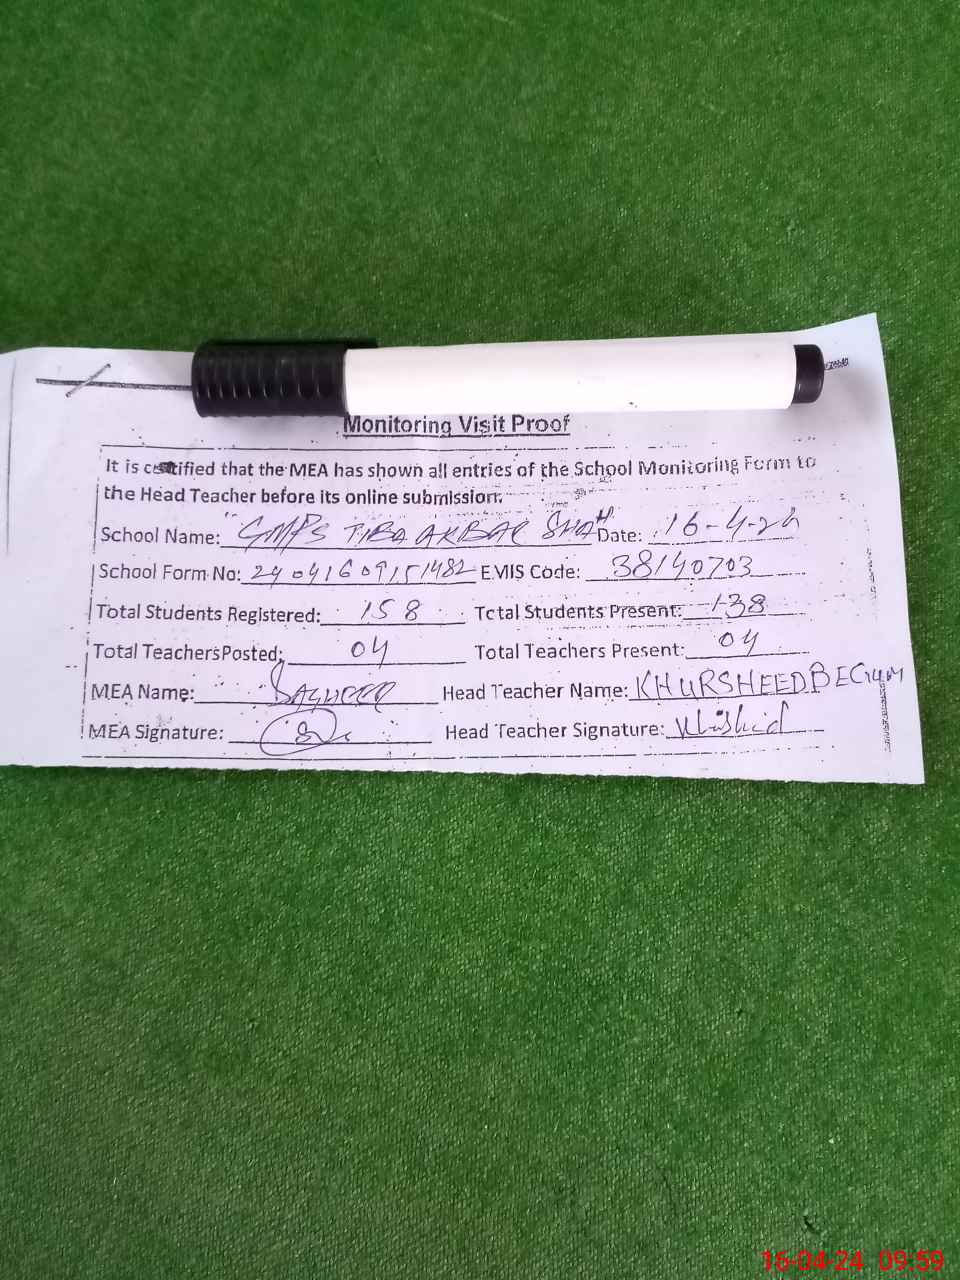 Monitoring Visit Proof
It is certified that the MEA has shown all entries of the School Monitoring Form to
the Head Teacher before its online submission.
School Name: GMPS TIBA AKBAR SHAH Date: 16-4-24
School Form No: 24041609151482 EMIS Code: 38140703
Total Students Registered: 158 Total Students Present: 138
Total Teachers Posted: 04 Total Teachers Present: 04
MEA Name: Head Teacher Name: KHURSHEED BEGUM
MEA Signature: Head Teacher Signature:
16-04-24 09:59